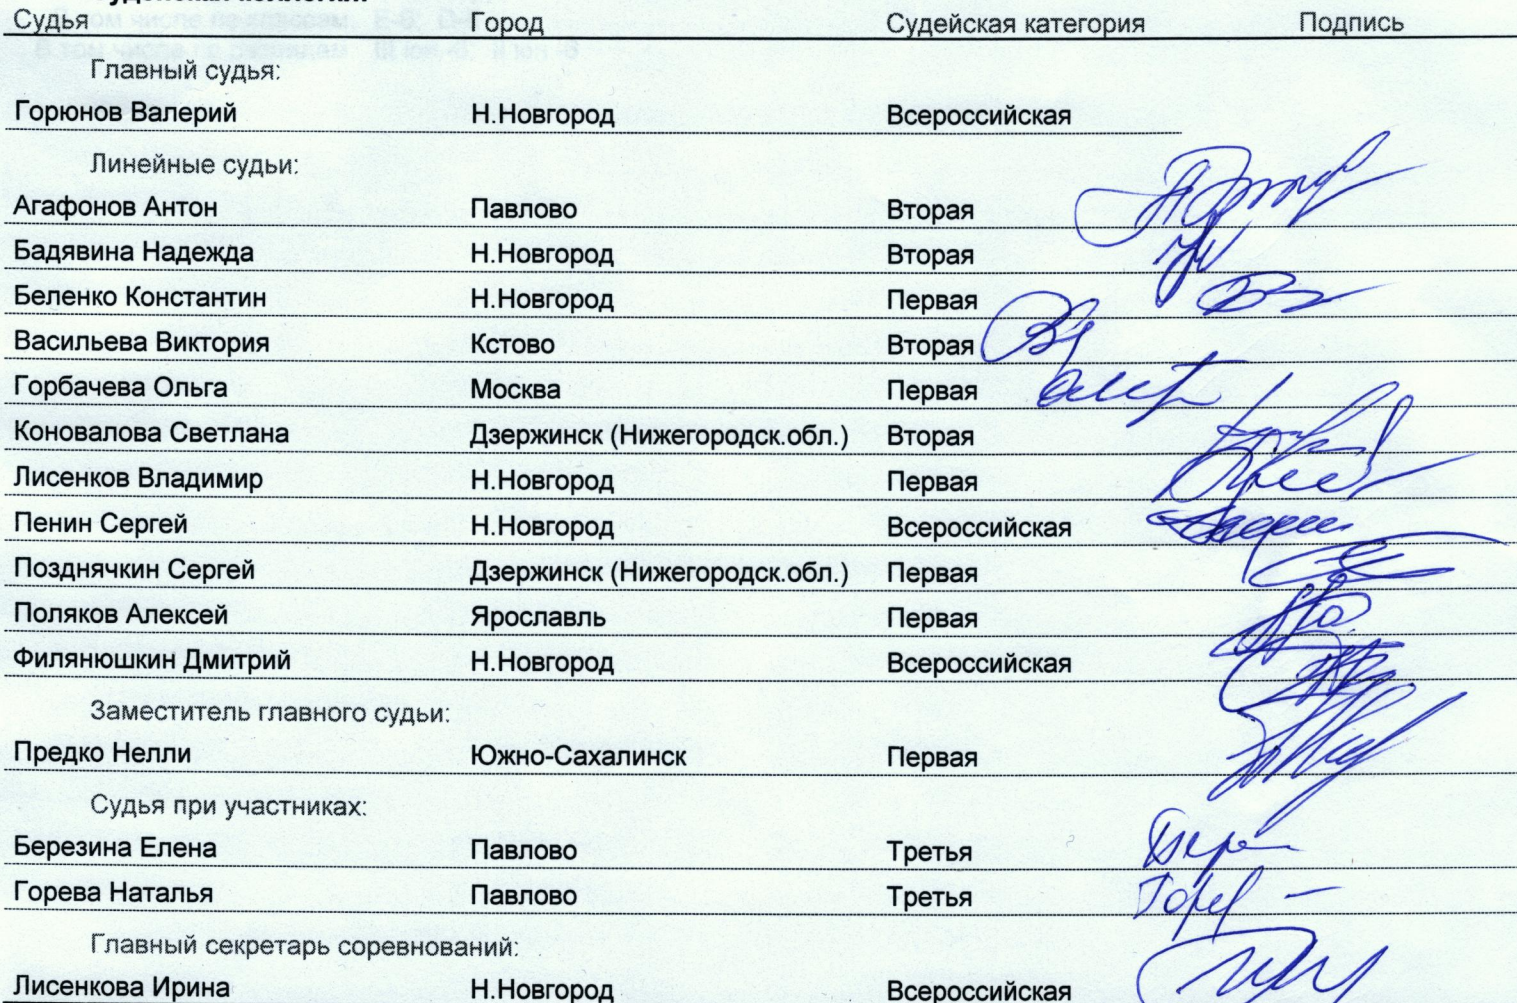 Судья Город Судейская категория Подпись
Главный судья:
Горюнов Валерий Н.Новгород Всероссийская
Линейные судьи:
Агафонов Антон Павлово Вторая
Бадявина Надежда Н.Новгород Вторая
Беленко Константин Н.Новгород Первая
Васильева Виктория Кстово Вторая
Горбачева Ольга Москва Первая
Коновалова Светлана Дзержинск (Нижегородск.обл.) Вторая
Лисенков Владимир Н.Новгород Первая
Пенин Сергей Н.Новгород Всероссийская
Позднячкин Сергей Дзержинск (Нижегородск.обл.) Первая
Поляков Алексей Ярославль Первая
Филянюшкин Дмитрий Н.Новгород Всероссийская
Заместитель главного судьи:
Предко Нелли Южно-Сахалинск Первая
Судья при участниках:
Березина Елена Павлово Третья
Горева Наталья Павлово Третья
Главный секретарь соревнований:
Лисенкова Ирина Н.Новгород Всероссийская